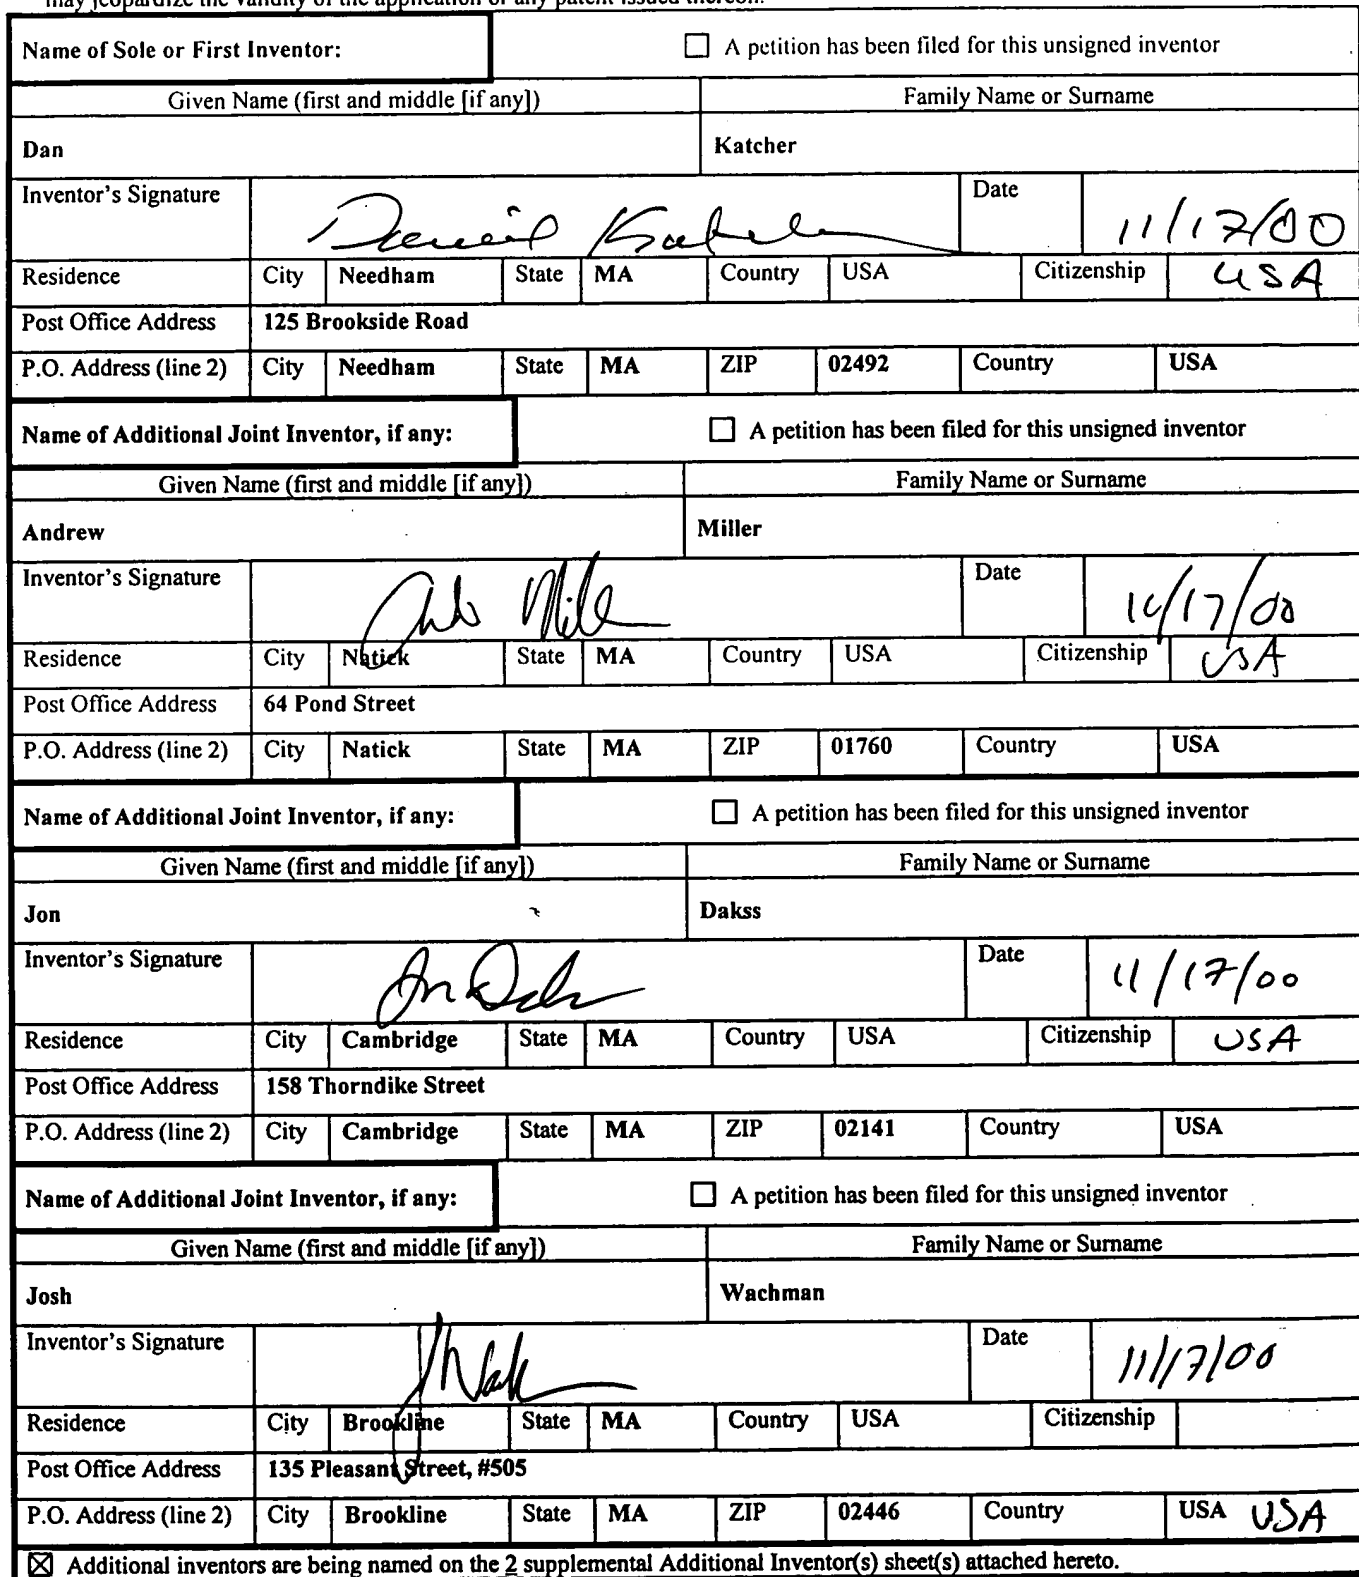 may jeopardize the validity of the application or any patent issued thereon.
Name of Sole or First Inventor: ☐ A petition has been filed for this unsigned inventor
Given Name (first and middle [if any]) Family Name or Surname
Dan Katcher
Inventor's Signature Daniel Katcher Date 11/17/00
Residence City Needham State MA Country USA Citizenship USA
Post Office Address 125 Brookside Road
P.O. Address (line 2) City Needham State MA ZIP 02492 Country USA
Name of Additional Joint Inventor, if any: ☐ A petition has been filed for this unsigned inventor
Given Name (first and middle [if any]) Family Name or Surname
Andrew Miller
Inventor's Signature Date 11/17/00
Residence City Natick State MA Country USA Citizenship USA
Post Office Address 64 Pond Street
P.O. Address (line 2) City Natick State MA ZIP 01760 Country USA
Name of Additional Joint Inventor, if any: ☐ A petition has been filed for this unsigned inventor
Given Name (first and middle [if any]) Family Name or Surname
Jon Dakss
Inventor's Signature Date 11/17/00
Residence City Cambridge State MA Country USA Citizenship USA
Post Office Address 158 Thorndike Street
P.O. Address (line 2) City Cambridge State MA ZIP 02141 Country USA
Name of Additional Joint Inventor, if any: ☐ A petition has been filed for this unsigned inventor
Given Name (first and middle [if any]) Family Name or Surname
Josh Wachman
Inventor's Signature Date 11/17/00
Residence City Brookline State MA Country USA Citizenship
Post Office Address 135 Pleasant Street, #505
P.O. Address (line 2) City Brookline State MA ZIP 02446 Country USA USA
☒ Additional inventors are being named on the 2 supplemental Additional Inventor(s) sheet(s) attached hereto.